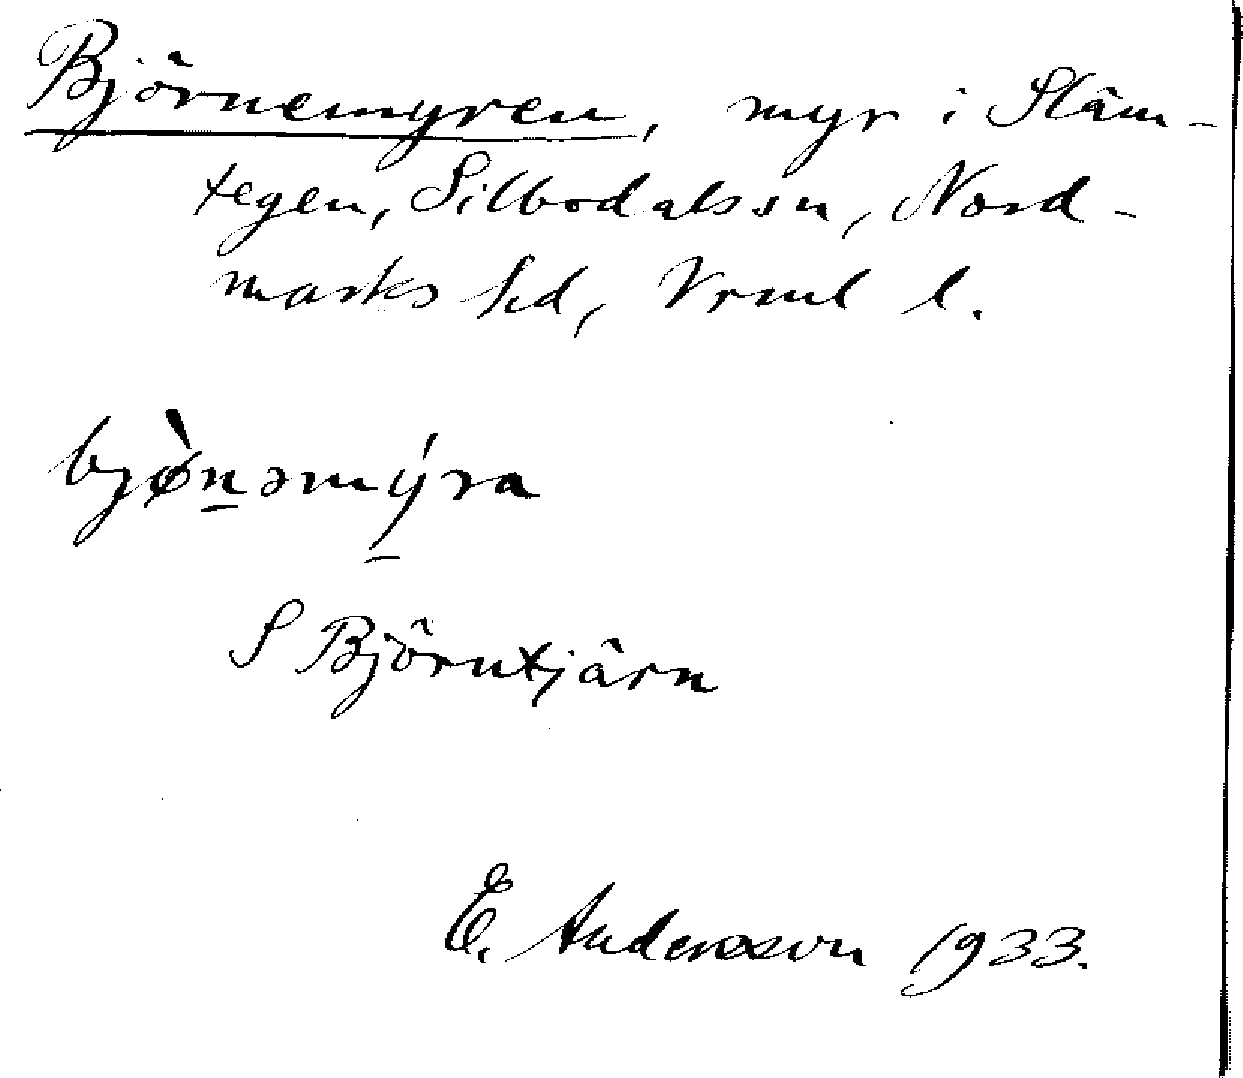 Björnemyren, myr i Släm-
tegen, Silbodalssn, Nord-
marks hd, Vrml l.
bjø̀n̠əmý̠ra
S Björntjärn
E. Andersson 1933.